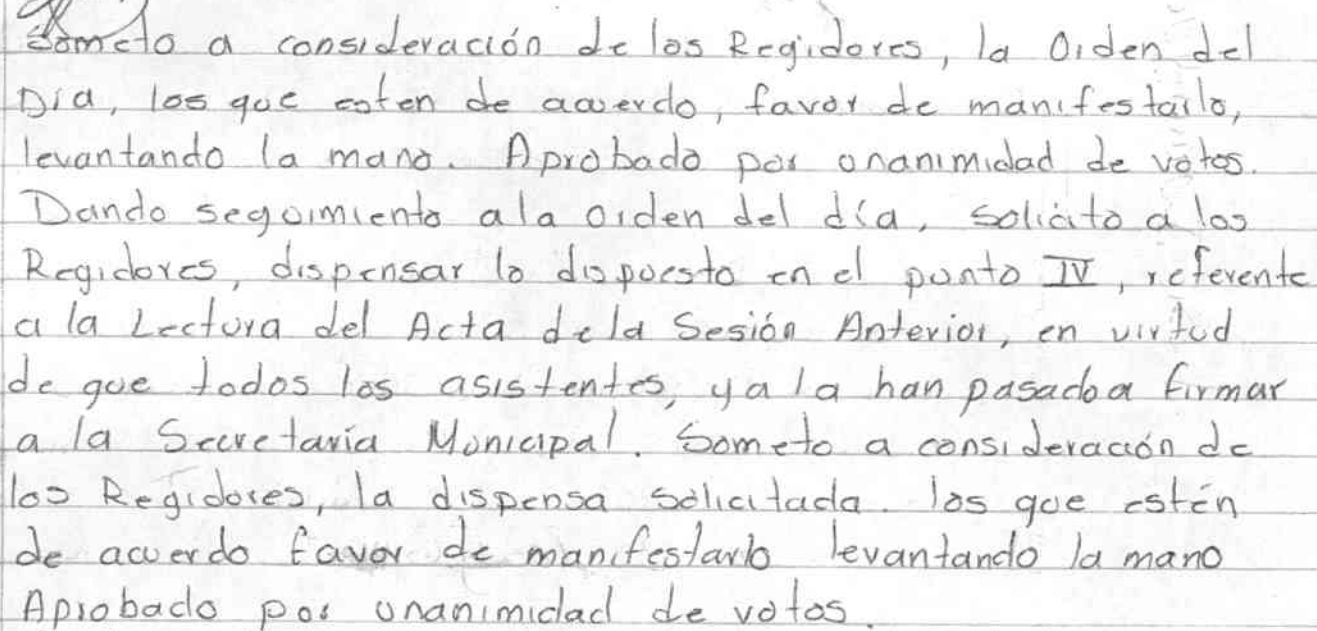 Someto a consideración de los Regidores, la Orden del
Día, los que esten de acuerdo, favor de manifestarlo,
levantando la mano. Aprobado por unanimidad de votos.
Dando seguimiento ala orden del día, solicito a los
Regidores, dispensar lo dispuesto en el punto IV, referente
a la Lectura del Acta dela Sesión Anterior, en virtud
de que todos los asistentes, ya la han pasado a firmar
a la Secretaría Municipal. Someto a consideración de
los Regidores, la dispensa solicitada. los que estén
de acuerdo favor de manifestarlo levantando la mano
Aprobado por unanimidad de votos.